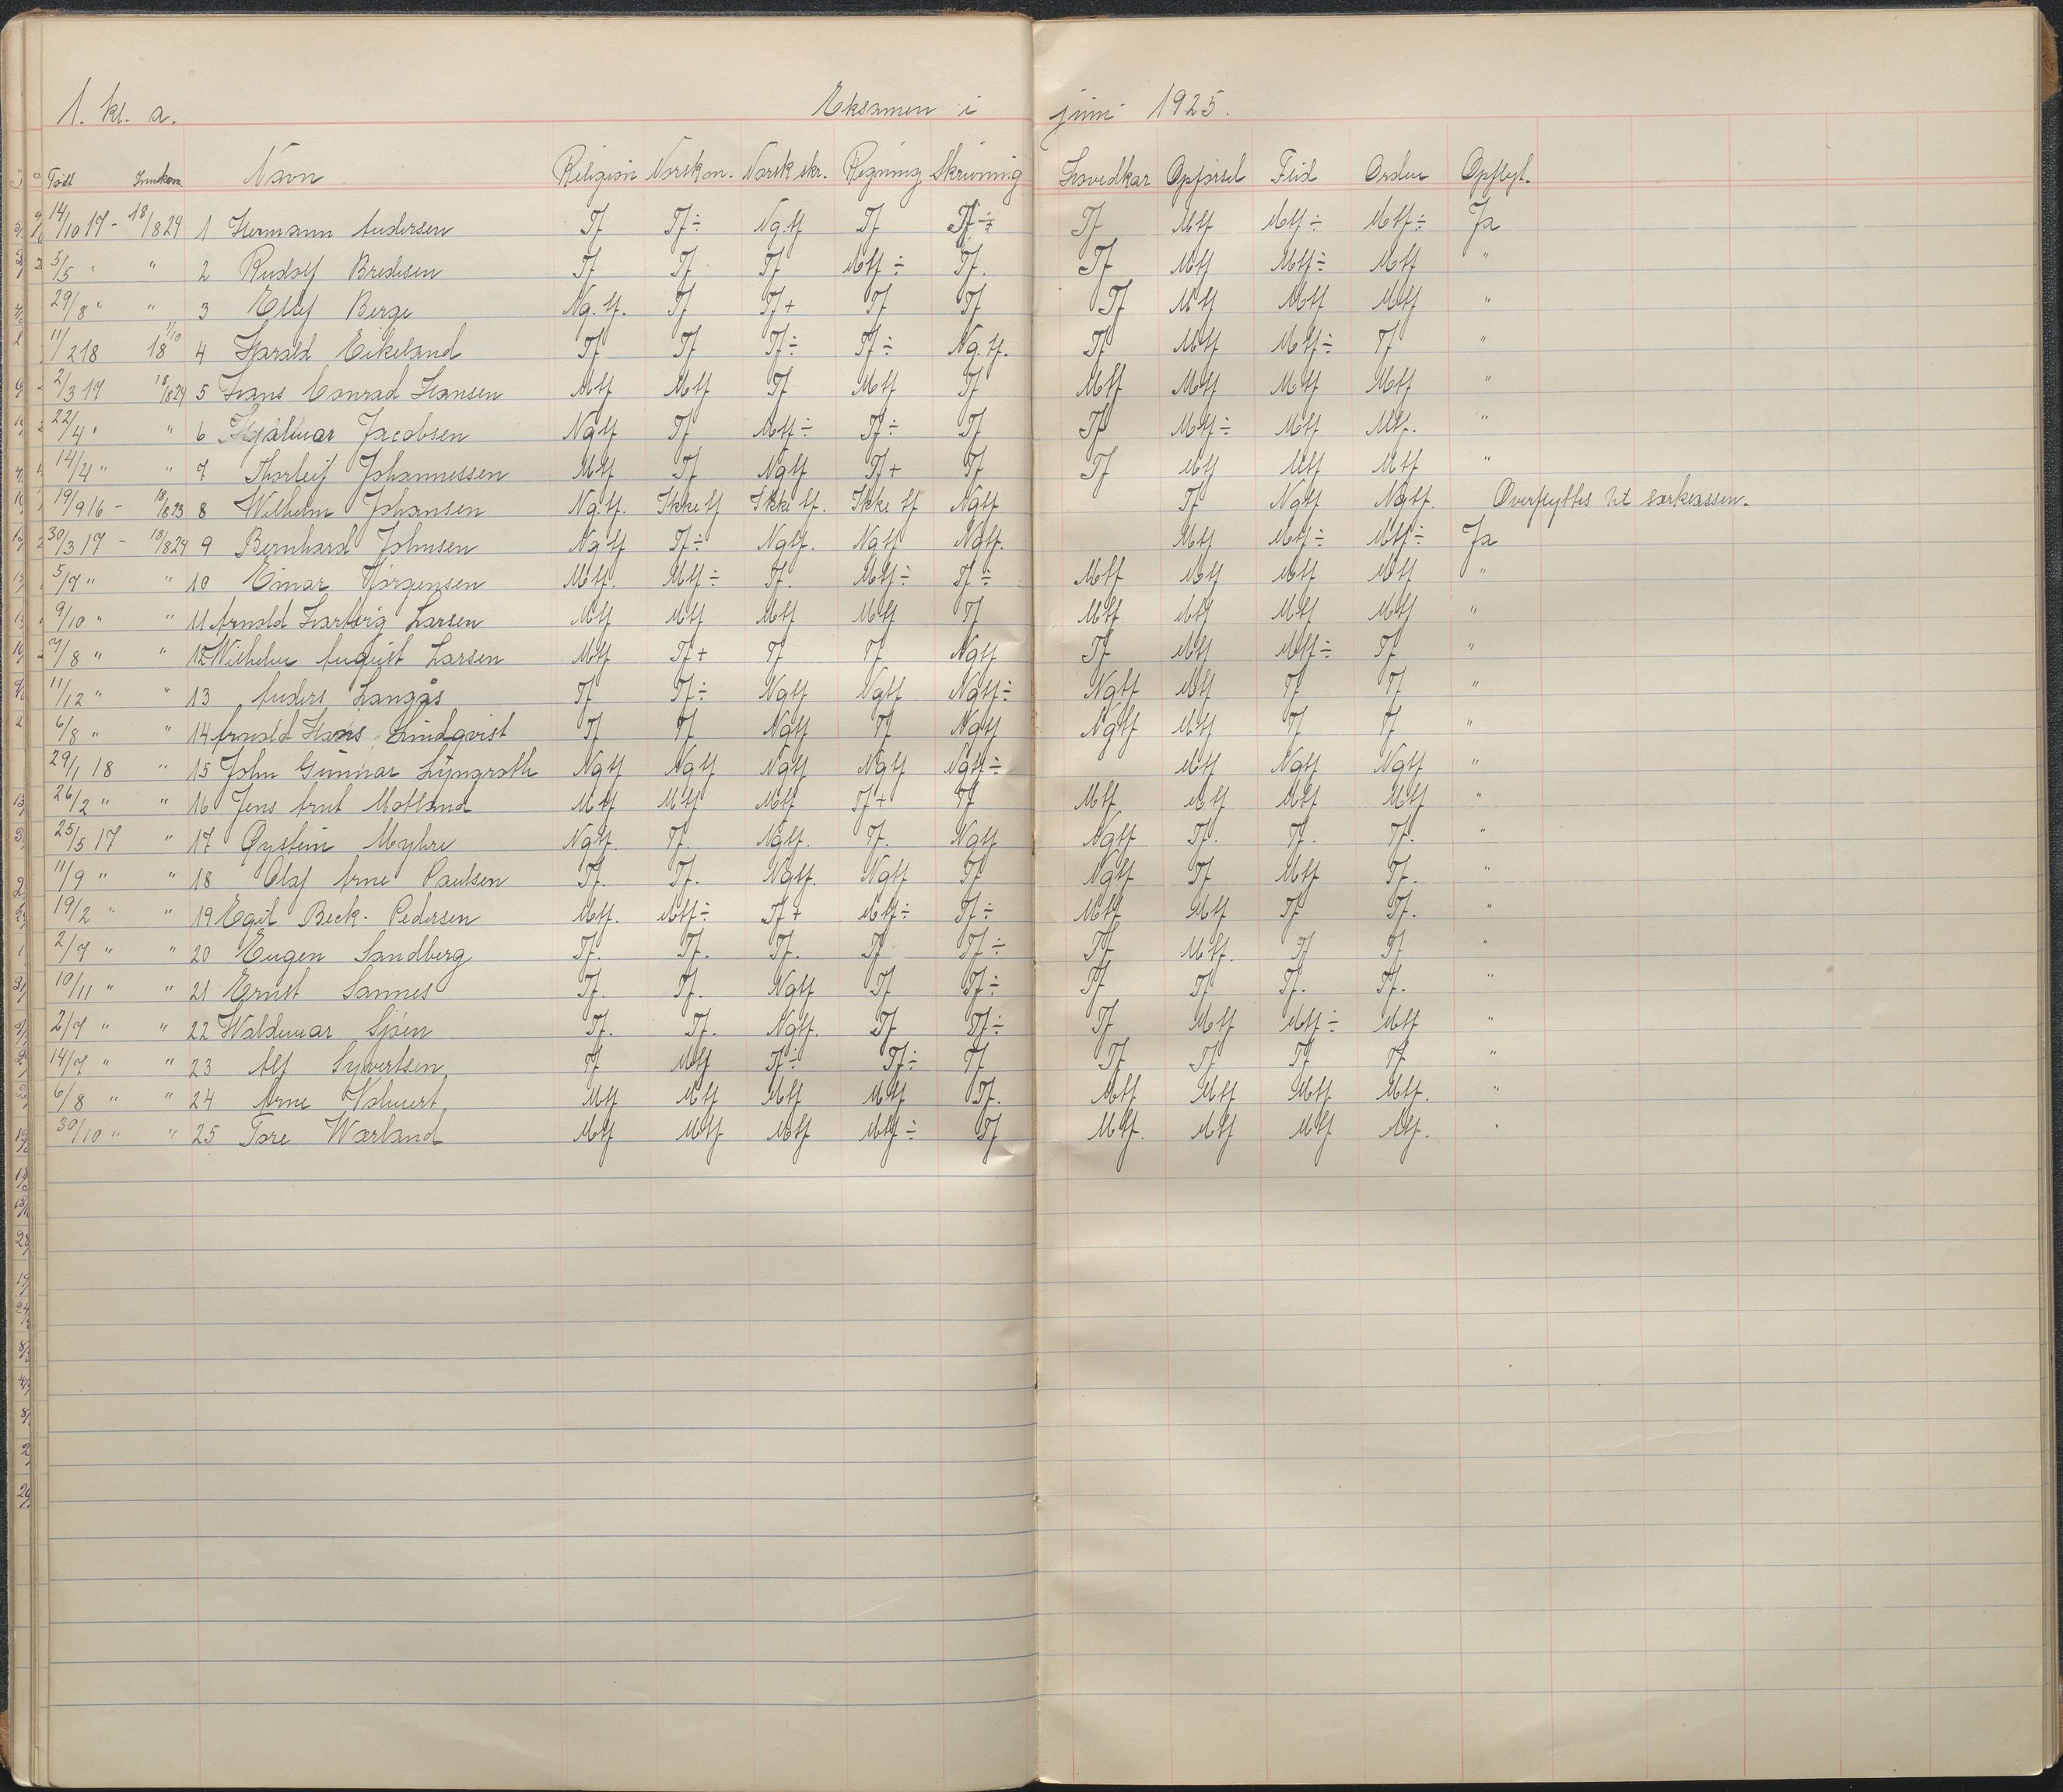 1. kl. a. Eksamen i juni 1925.
Født Innkom Navn Religion Norsk m. Norsk skr. Regning Skrivning Hovedkar Opførsel Flid Orden Opflyt.
14/10 17 - 18/8 24 1 Hermann Andersen Tf Tf÷ Ng.tf Tf Tf÷ Tf Mtf Mtf÷ Mtf÷ Ja
5/5 " " 2 Rudolf Bredesen Tf Tf Tf Mtf÷ Tf. Tf Mtf Mtf÷ Mtf "
29/8 " " 3 Berge Ng.tf. Tf Tf+ Tf Tf Tf Mtf Mtf Mtf "
11/2 18 4 Harald Eikeland Tf Tf Tf÷ Tf÷ Ng.tf. Tf Mtf Mtf÷ Tf "
2/3 17 18/8 24 5 Hans Conrad Hansen Mtf Mtf Tf Mtf Tf Mtf Mtf Mtf Mtf "
22/4 " " 6 Hjalmar Jacobsen Ngtf Tf Mtf÷ Tf÷ Tf Tf Mtf÷ Mtf Mtf. "
14/4 " " 7 Thorleif Johannessen Mtf Tf Ngtf Tf+ Tf Tf Mtf Mtf Mtf "
19/9 16 - 18/8 23 8 Wilhelm Johansen Ng.tf. Ikke tf Ikke tf. Ikke tf Ngtf Tf Ngtf Ngtf. Overflyttes til særklassen.
30/3 17 - 18/8 24 9 Bernhard Johnsen Ngtf Tf÷ Ngtf. Ngtf Ngtf. Mtf Mtf÷ Mtf÷ Ja
5/7 " " 10 Einar Jørgensen Mtf. Mtf÷ Tf. Mtf÷ Tf÷ Mtf Mtf Mtf Mtf "
9/10 " " 11 Arnold Hartvig Larsen Mtf Mtf Mtf Mtf Tf Mtf Mtf Mtf Mtf "
7/8 " " 12 Wilhelm August Larsen Mtf Tf+ Tf Tf Ngtf Tf Mtf Mtf÷ Tf "
11/12 " " 13 Anders Langås Tf Tf÷ Ngtf Ngtf Ngtf÷ Ngtf Mtf Tf Tf "
6/8 " " 14 Arnold Hans Lindqvist Tf Tf Ngtf Tf Ngtf Ngtf Mtf Tf Tf "
29/1 18 " 15 John Gunnar Ljungroth Ngtf Ngtf Ngtf Ngtf Ngtf÷ Mtf Ngtf Ngtf "
26/2 " " 16 Jens Arnt Motland Mtf Mtf Mtf Tf+ Tf Mtf Mtf Mtf Mtf "
25/5 17 " 17 Øystein Myhre Ngtf. Tf. Ngtf. Tf. Ngtf Ngtf Tf. Tf. Tf. "
11/9 " " 18 Olaf Arne Paulsen Tf. Tf. Ngtf. Ngtf Tf Ngtf Tf Mtf Tf. "
19/2 " " 19 Egil Beck-Pedersen Mtf. Mtf÷ Tf+ Mtf÷ Tf÷ Mtf Mtf Tf Tf. "
2/7 " " 20 Eugen Sandberg Tf. Tf. Tf. Tf Tf÷ Tf Mtf. Tf Tf "
10/11 " " 21 Ernst Sannes Tf. Tf. Ngtf Tf Tf÷ Tf Tf Tf. Tf. "
2/7 " " 22 Waldemar Sjøen Tf. Tf. Ngtf. Tf Tf÷ Tf Mtf Mtf÷ Mtf "
14/7 " " 23 Alf Syvertsen Tf Mtf Tf÷ Tf÷ Tf Tf Tf Tf Tf "
6/8 " " 24 Arne Mtf Mtf Mtf Mtf Tf. Mtf Mtf Mtf Mtf. "
30/10 " " 25 Tore Wærland Mtf Mtf Mtf Mtf÷ Tf Mtf. Mtf Mtf Mtf. "